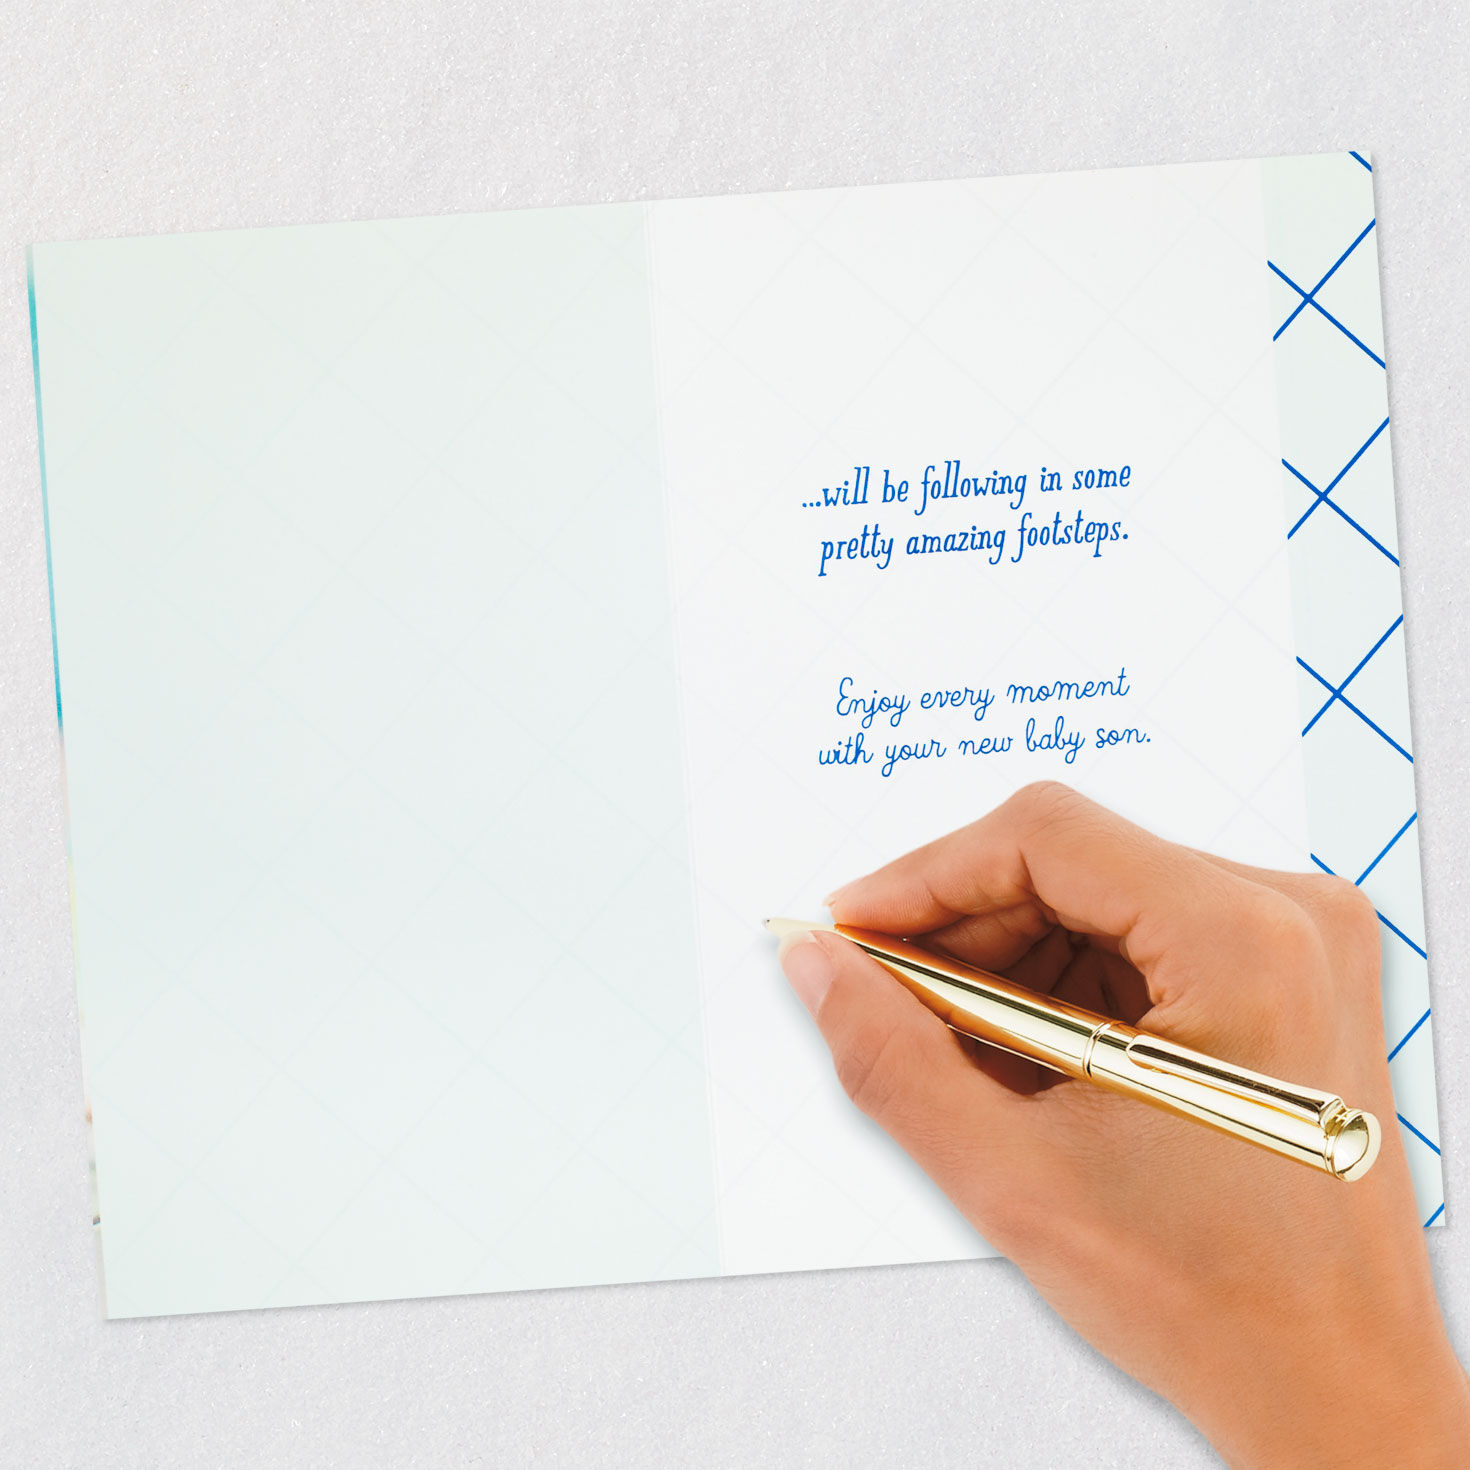 ...will be following in some
pretty amazing footsteps.
Enjoy every moment
with your new baby son.